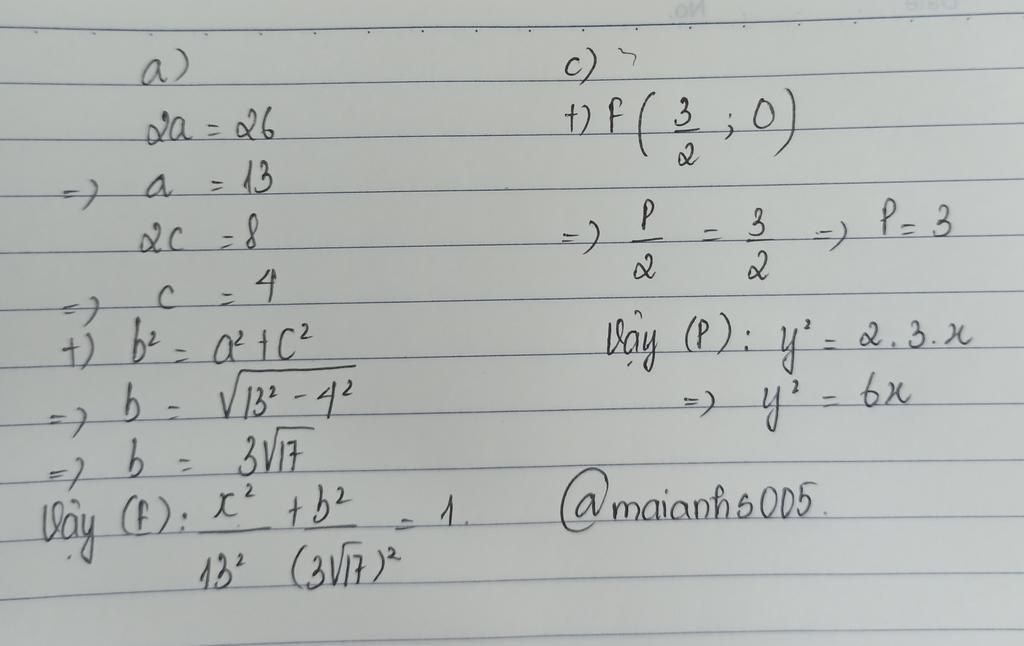 a)
2a = 26
=) a = 13
2c = 8
=) c = 4
+) b² = a² + c²
=) b = √(13² - 4²)
=) b = 3√17
Vậy (E): x²/13² + b²/(3√17)² = 1.
c)
+) F(3/2 ; 0)
=) P/2 = 3/2 =) P = 3
Vậy (P): y² = 2.3.x
=) y² = 6x
@maianhs005.